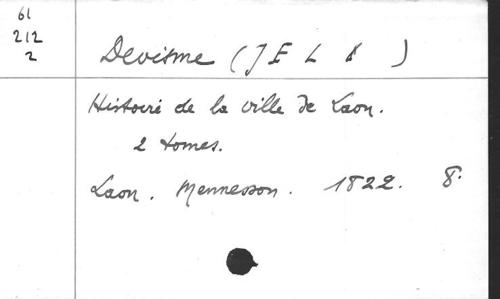 61
212
2
Devisme (J E L
)
Histoire de la ville de Laon.
2 tomes.
Laon. Mennesson. 1822. 8.